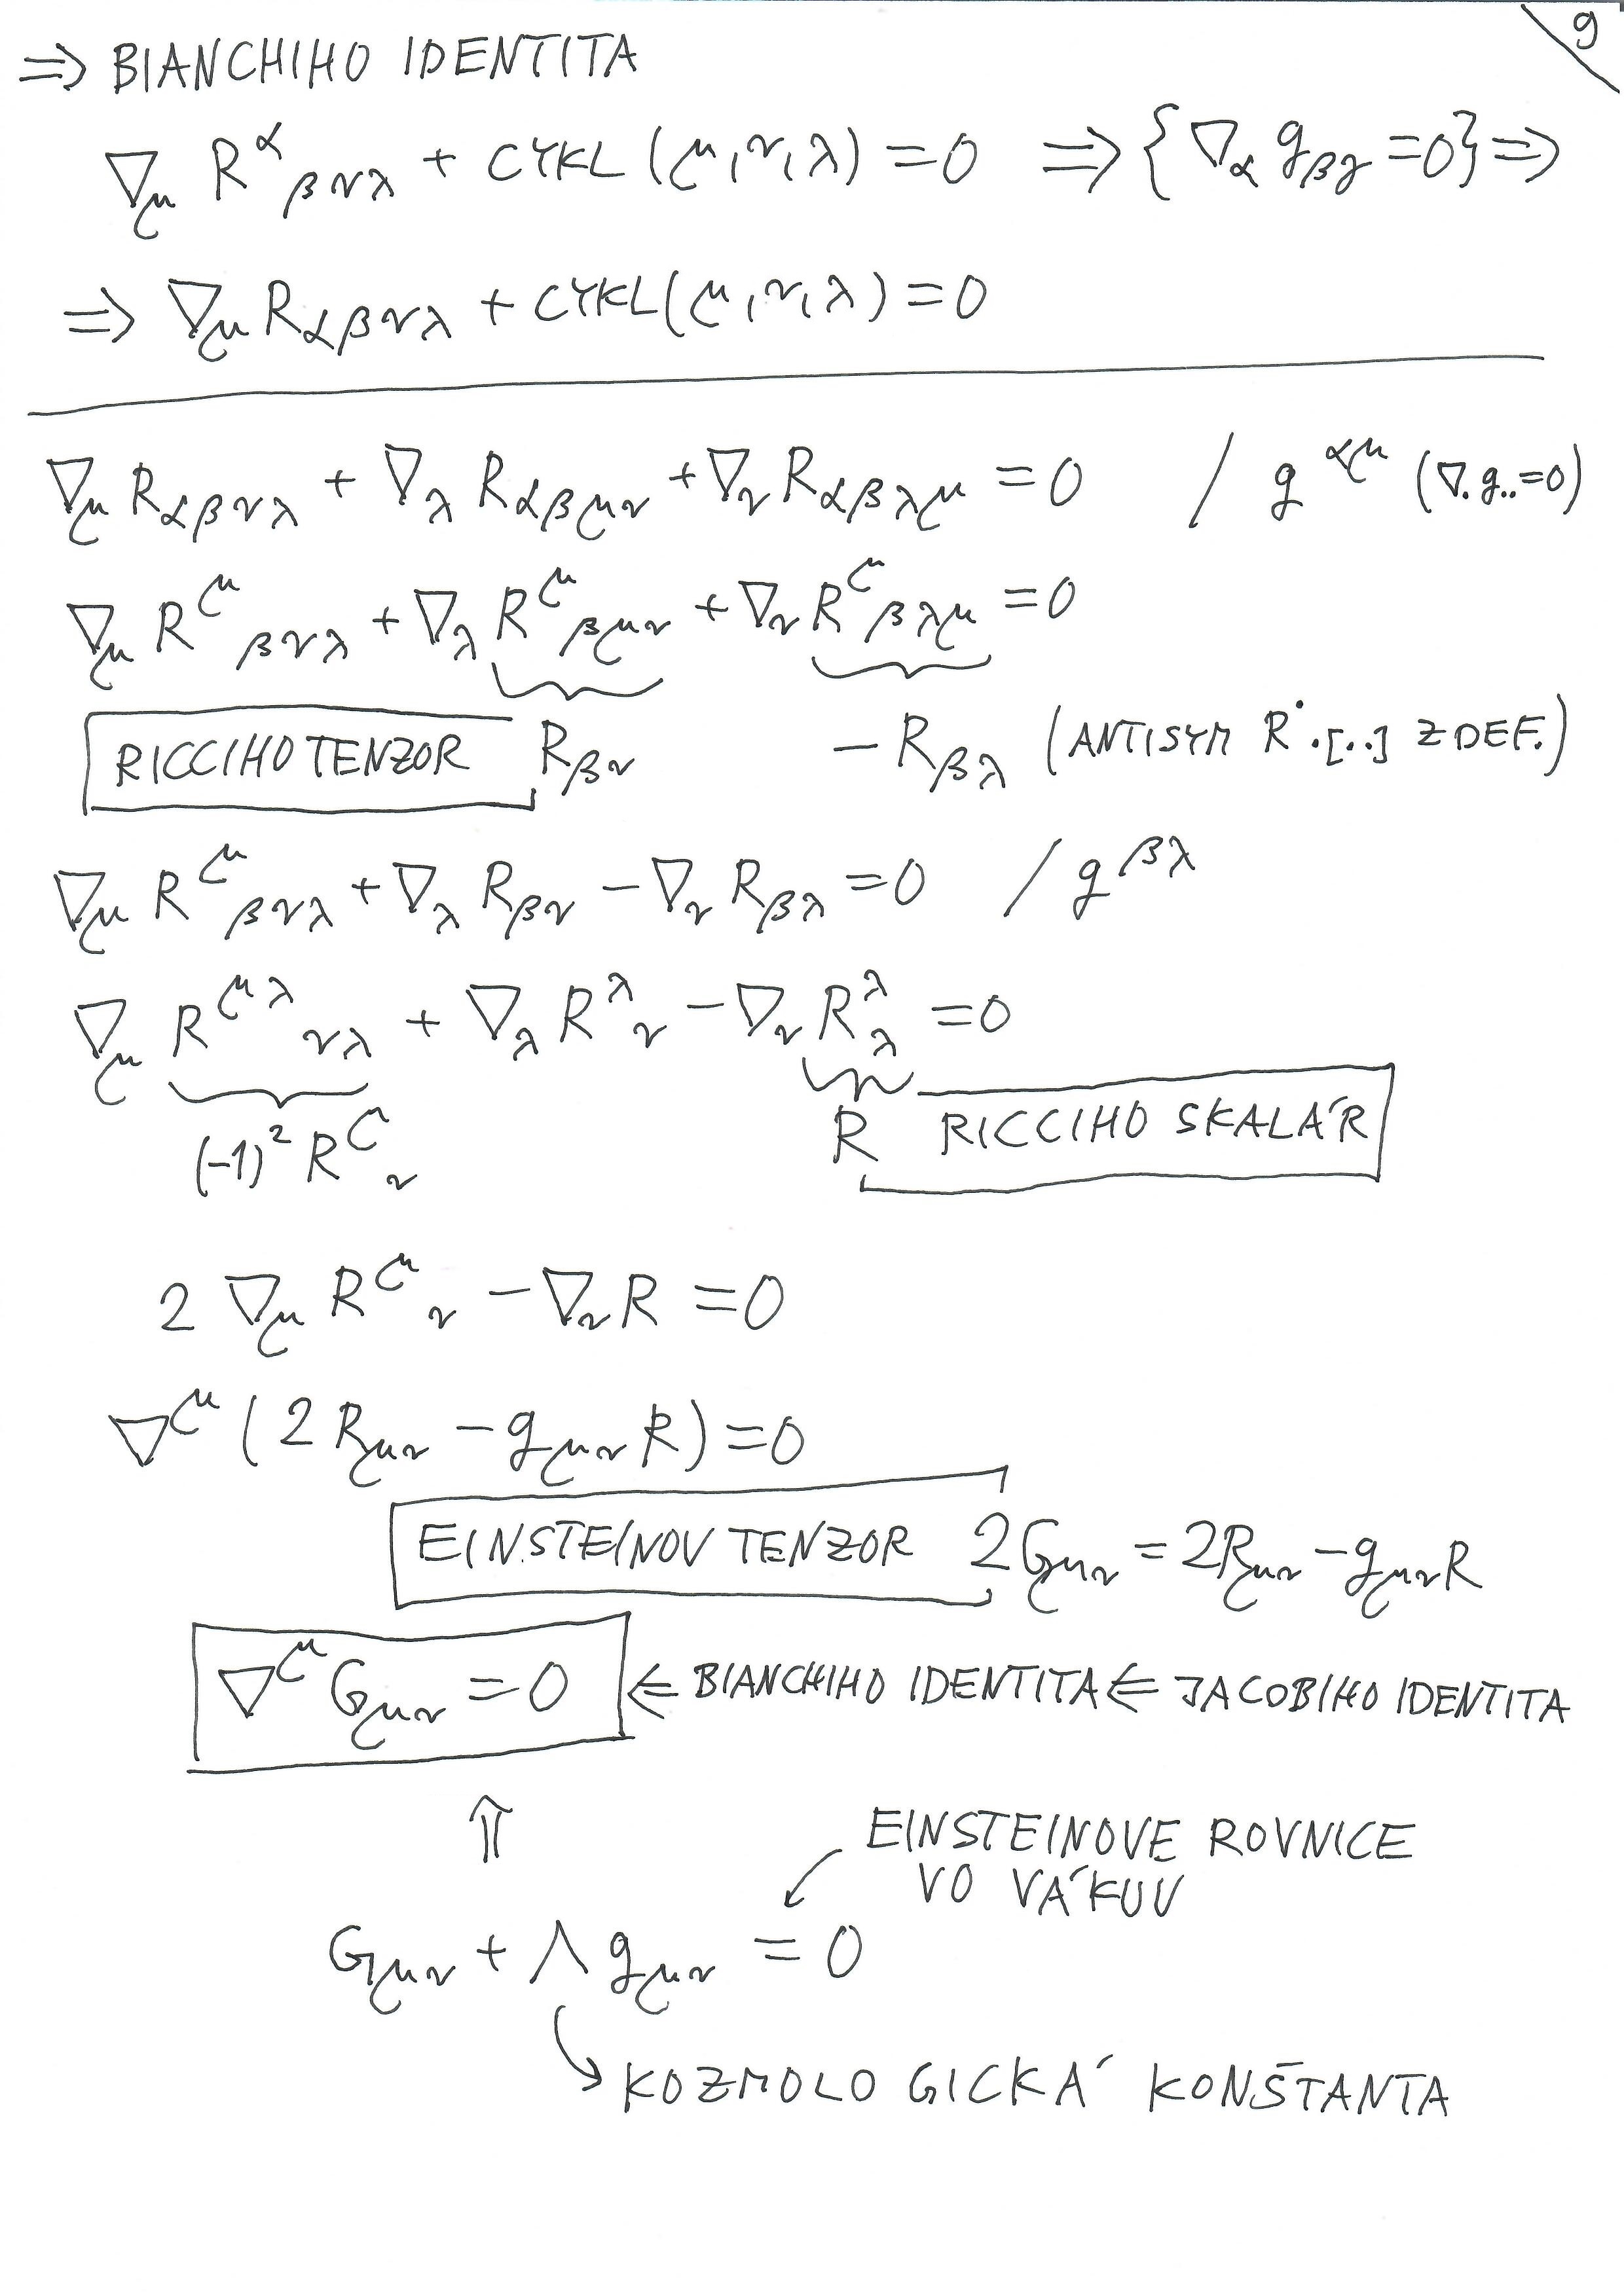 9
⇒ BIANCHIHO IDENTITA
∇_μ R^α_{βνλ} + CYKL (μ,ν,λ) = 0 ⇒ {∇_α g_{βγ} = 0} ⇒
⇒ ∇_μ R_{αβνλ} + CYKL (μ,ν,λ) = 0
∇_μ R_{αβνλ} + ∇_λ R_{αβμν} + ∇_ν R_{αβλμ} = 0 / g^{αμ} (∇. g.. = 0)
∇_μ R^μ_{βνλ} + ∇_λ R^μ_{βμν} + ∇_ν R^μ_{βλμ} = 0
RICCIHO TENZOR R_{βν} - R_{βλ} (ANTISYM R^._{.[..]} Z DEF.)
∇_μ R^μ_{βνλ} + ∇_λ R_{βν} - ∇_ν R_{βλ} = 0 / g^{βλ}
∇_μ R^{μλ}_{νλ} + ∇_λ R^λ_ν - ∇_ν R^λ_λ = 0
(-1)^2 R^μ_ν R RICCIHO SKALÁR
2 ∇_μ R^μ_ν - ∇_ν R = 0
∇^μ (2 R_{μν} - g_{μν} R) = 0
EINSTEINOV TENZOR 2G_{μν} = 2R_{μν} - g_{μν} R
∇^μ G_{μν} = 0 ⇐ BIANCHIHO IDENTITA ⇐ JACOBIHO IDENTITA
⇑
EINSTEINOVE ROVNICE
VO VÁKUU
G_{μν} + Λ g_{μν} = 0
KOZMOLOGICKÁ KONŠTANTA